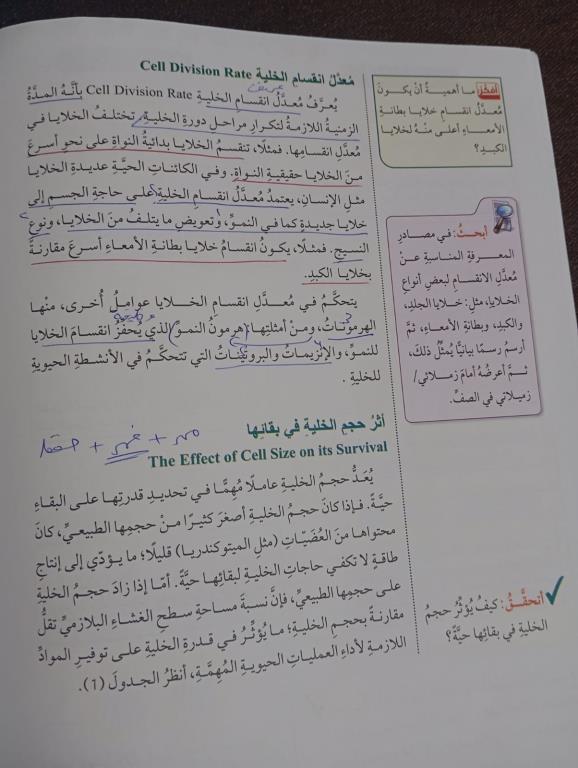 مُعدَّل انقسام الخلية Cell Division Rate
يُعرَّفُ مُعدَّلُ انقسامِ الخليةِ Cell Division Rate بأنَّهُ المدَّةُ
الزمنيةُ اللازمةُ لتكرارِ مراحلِ دورةِ الخليةِ. تختلفُ الخلايا في
مُعدَّلِ انقسامِها. فمثلًا، تنقسمُ الخلايا بدائيةُ النواةِ على نحوٍ أسرعَ
منَ الخلايا حقيقيةِ النواةِ. وفي الكائناتِ الحيَّةِ عديدةِ الخلايا
مثلِ الإنسانِ، يعتمدُ مُعدَّلُ انقسامِ الخليةِ على حاجةِ الجسمِ إلى
خلايا جديدةٍ كما في النموِّ، وتعويضِ ما يتلفُ منَ الخلايا، ونوعِ
النسيجِ. فمثلًا، يكونُ انقسامُ خلايا بطانةِ الأمعاءِ أسرعَ مقارنةً
بخلايا الكبدِ.
يتحكَّمُ في مُعدَّلِ انقسامِ الخلايا عواملُ أُخرى، منْها
الهرموناتُ، ومنْ أمثلتِها: هرمونُ النموِّ الذي يُحفِّزُ انقسامَ الخلايا
للنموِّ، والإنزيماتُ والبروتيناتُ التي تتحكَّمُ في الأنشطةِ الحيويةِ
للخليةِ.
أثرُ حجمِ الخليةِ في بقائِها
The Effect of Cell Size on its Survival
يُعَدُّ حجمُ الخليةِ عاملًا مُهِمًّا في تحديدِ قدرتِها على البقاءِ
حيَّةً. فإذا كانَ حجمُ الخليةِ أصغرَ كثيرًا منْ حجمِها الطبيعيِّ، كانَ
محتواها منَ العُضَيّاتِ (مثلِ الميتوكندريا) قليلًا؛ ما يؤدّي إلى إنتاجِ
طاقةٍ لا تكفي حاجاتِ الخليةِ لبقائِها حيَّةً. أمّا إذا زادَ حجمُ الخليةِ
على حجمِها الطبيعيِّ، فإنَّ نسبةَ مساحةِ سطحِ الغشاءِ البلازميِّ تقلُّ
مقارنةً بحجمِ الخليةِ؛ ما يُؤثِّرُ في قدرةِ الخليةِ على توفيرِ الموادِّ
اللازمةِ لأداءِ العملياتِ الحيويةِ المُهِمَّةِ، أنظرُ الجدولَ (1).
أفكر ما أهميةُ أنْ يكونَ
مُعدَّلُ انقسامِ خلايا بطانةِ
الأمعاءِ أعلى منْهُ لخلايا
الكبدِ؟
أبحثُ: في مصادرِ
المعرفةِ المناسبةِ عنْ
مُعدَّلِ الانقسامِ لبعضِ أنواعِ
الخلايا، مثلِ: خلايا الجلدِ،
والكبدِ، وبطانةِ الأمعاءِ، ثمَّ
أرسمُ رسمًا بيانيًّا يُمثِّلُ ذلكَ،
ثمَّ أعرضُهُ أمامَ زملائي/
زميلاتي في الصفِّ.
أتحقَّقُ: كيفَ يُؤثِّرُ حجمُ
الخليةِ في بقائِها حيَّةً؟